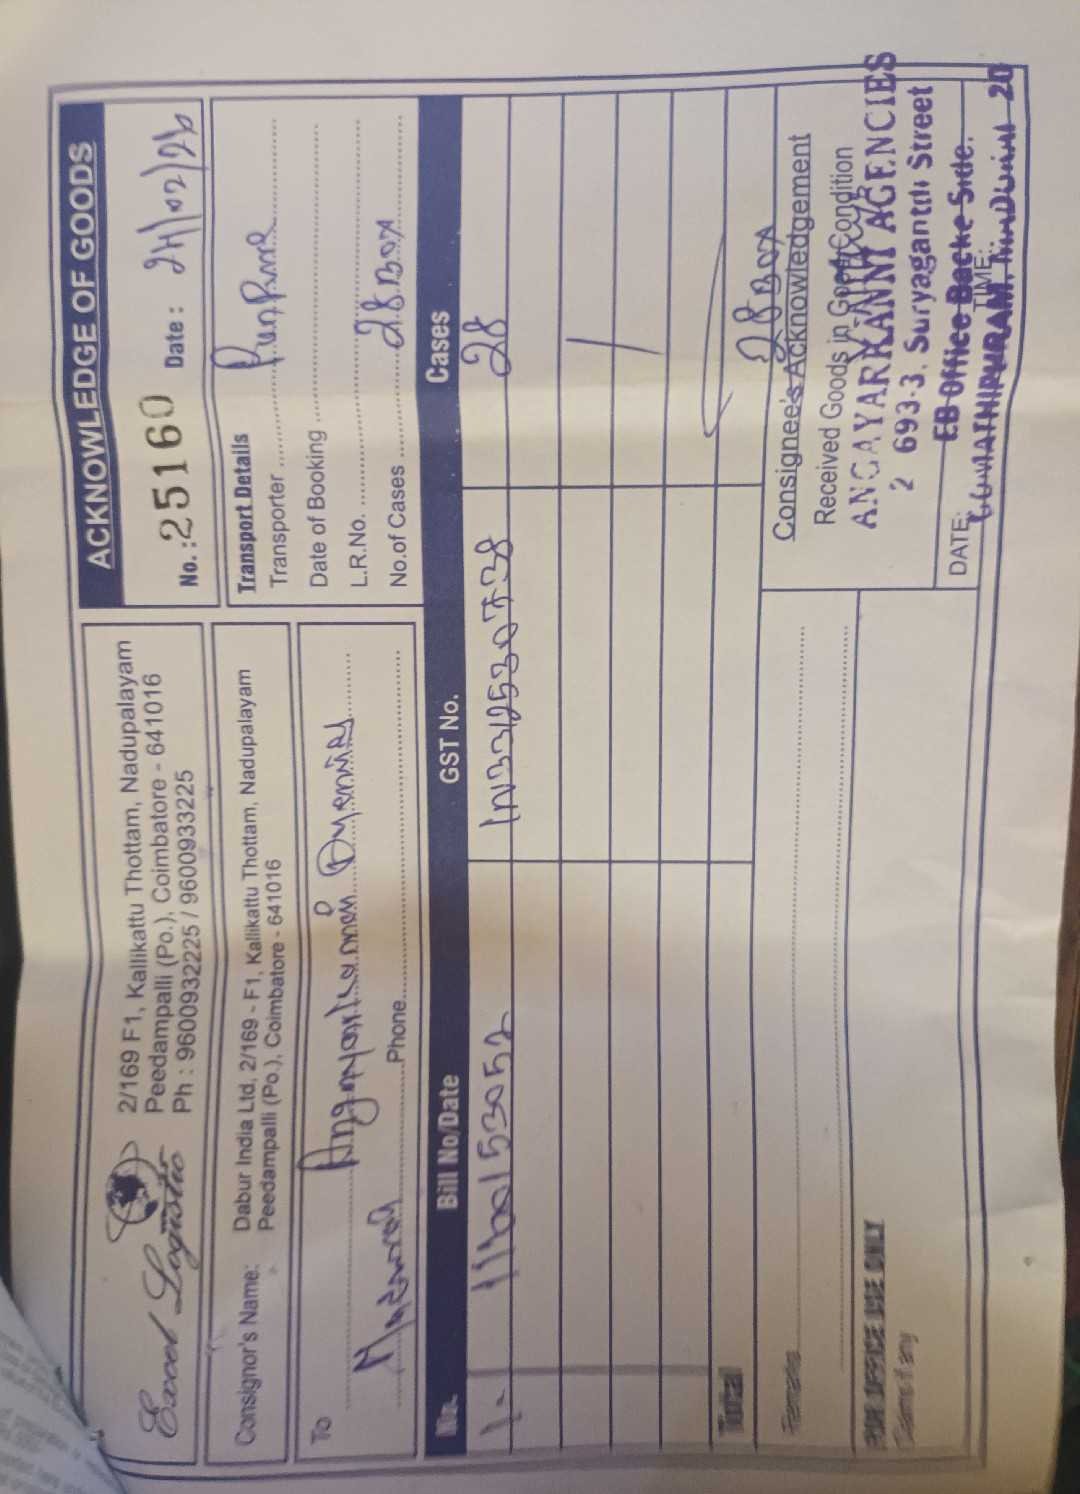 Excel Logistic
2/169 F1, Kallikattu Thottam, Nadupalayam
Peedampalli (Po.), Coimbatore - 641016
Ph : 9600932225 / 9600933225
ACKNOWLEDGE OF GOODS
No. : 25160 Date : 24/02/26
Consignor's Name: Dabur India Ltd, 2/169 - F1, Kallikattu Thottam, Nadupalayam
Peedampalli (Po.), Coimbatore - 641016
Transport Details
Transporter
Date of Booking
L.R.No.
No.of Cases 28 Box
To
Phone
No. Bill No/Date GST No. Cases
1. 28
Total 28 Box
Remarks
Consignee's Acknowledgement
Received Goods in Good Condition
ANGAYARKANNI AGENCIES
2 693-3, Suryagandhi Street
EB Office Backe Side.
GOMATHIPURAM, MADURAI 20
DATE: TIME:
FOR OFFICE USE ONLY
Claims if any